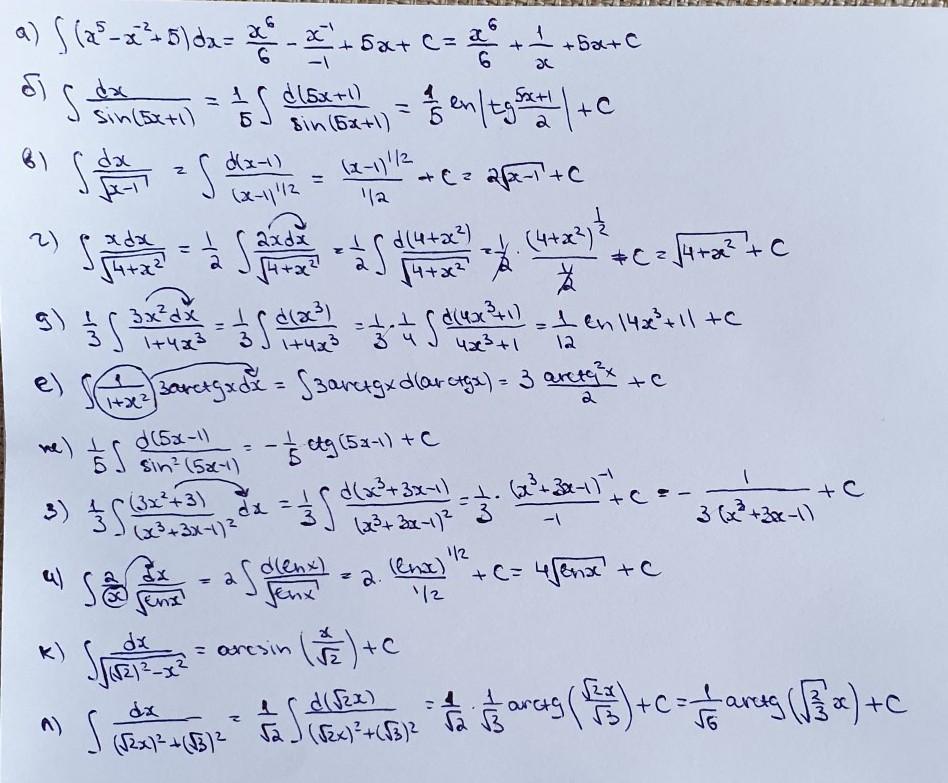 а) ∫(x⁵−x⁻²+5)dx = x⁶/6 − x⁻¹/−1 + 5x + C = x⁶/6 + 1/x + 5x + C
б) ∫ dx/sin(5x+1) = 1/5 ∫ d(5x+1)/sin(5x+1) = 1/5 ln|tg (5x+1)/2| + C
в) ∫ dx/√(x−1) = ∫ d(x−1)/(x−1)^1/2 = (x−1)^1/2 / 1/2 + C = 2√(x−1) + C
г) ∫ xdx/√(4+x²) = 1/2 ∫ 2xdx/√(4+x²) = 1/2 ∫ d(4+x²)/√(4+x²) = 1/2 · (4+x²)^1/2 / 1/2 + C = √(4+x²) + C
д) 1/3 ∫ 3x²dx/(1+4x³) = 1/3 ∫ d(x³)/(1+4x³) = 1/3 · 1/4 ∫ d(4x³+1)/(4x³+1) = 1/12 ln|4x³+1| + C
е) ∫ (1/(1+x²)) 3arctgxdx = ∫3arctgxd(arctgx) = 3 arctg²x/2 + C
ж) 1/5 ∫ d(5x−1)/sin²(5x−1) = −1/5 ctg(5x−1) + C
з) 1/3 ∫ (3x²+3)/(x³+3x−1)² dx = 1/3 ∫ d(x³+3x−1)/(x³+3x−1)² = 1/3 · (x³+3x−1)⁻¹/−1 + C = − 1/3(x³+3x−1) + C
и) ∫ 2/x dx/√lnx = 2∫ d(lnx)/√lnx = 2 · (lnx)^1/2 / 1/2 + C = 4√lnx + C
к) ∫ dx/√((√2)²−x²) = arcsin (x/√2) + C
л) ∫ dx/((√2x)²+(√3)²) = 1/√2 ∫ d(√2x)/((√2x)²+(√3)²) = 1/√2 · 1/√3 arctg(√2x/√3) + C = 1/√6 arctg(√(2/3) x) + C